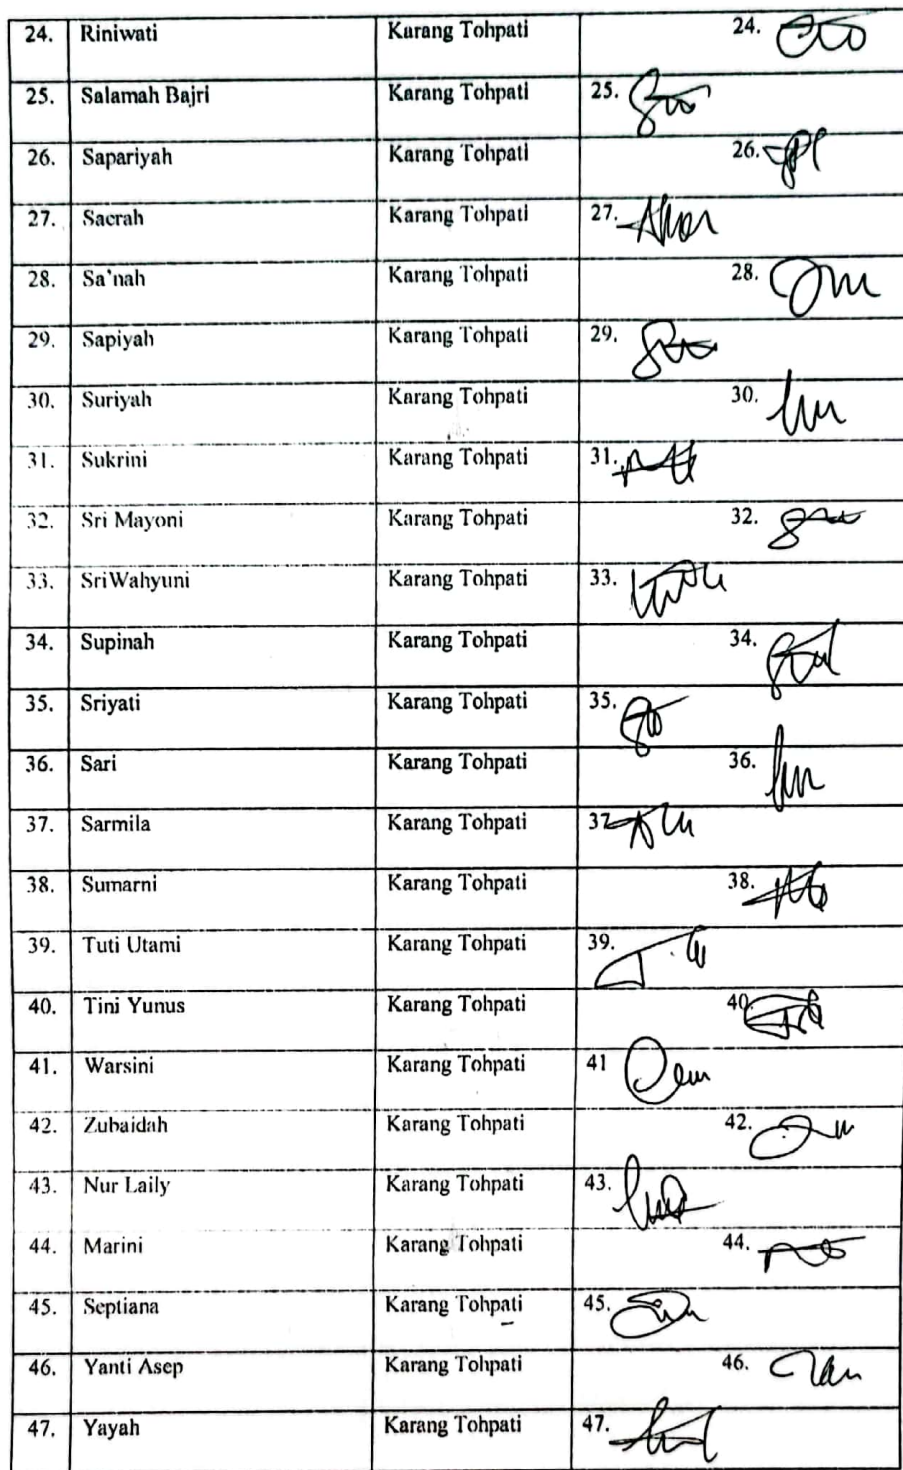 24. Riniwati Karang Tohpati 24.
25. Salamah Bajri Karang Tohpati 25.
26. Sapariyah Karang Tohpati 26.
27. Saerah Karang Tohpati 27.
28. Sa'nah Karang Tohpati 28.
29. Sapiyah Karang Tohpati 29.
30. Suriyah Karang Tohpati 30.
31. Sukrini Karang Tohpati 31.
32. Sri Mayoni Karang Tohpati 32.
33. SriWahyuni Karang Tohpati 33.
34. Supinah Karang Tohpati 34.
35. Sriyati Karang Tohpati 35.
36. Sari Karang Tohpati 36.
37. Sarmila Karang Tohpati 37
38. Sumarni Karang Tohpati 38.
39. Tuti Utami Karang Tohpati 39.
40. Tini Yunus Karang Tohpati 40.
41. Warsini Karang Tohpati 41
42. Zubaidah Karang Tohpati 42.
43. Nur Laily Karang Tohpati 43.
44. Marini Karang Tohpati 44.
45. Septiana Karang Tohpati 45.
46. Yanti Asep Karang Tohpati 46.
47. Yayah Karang Tohpati 47.